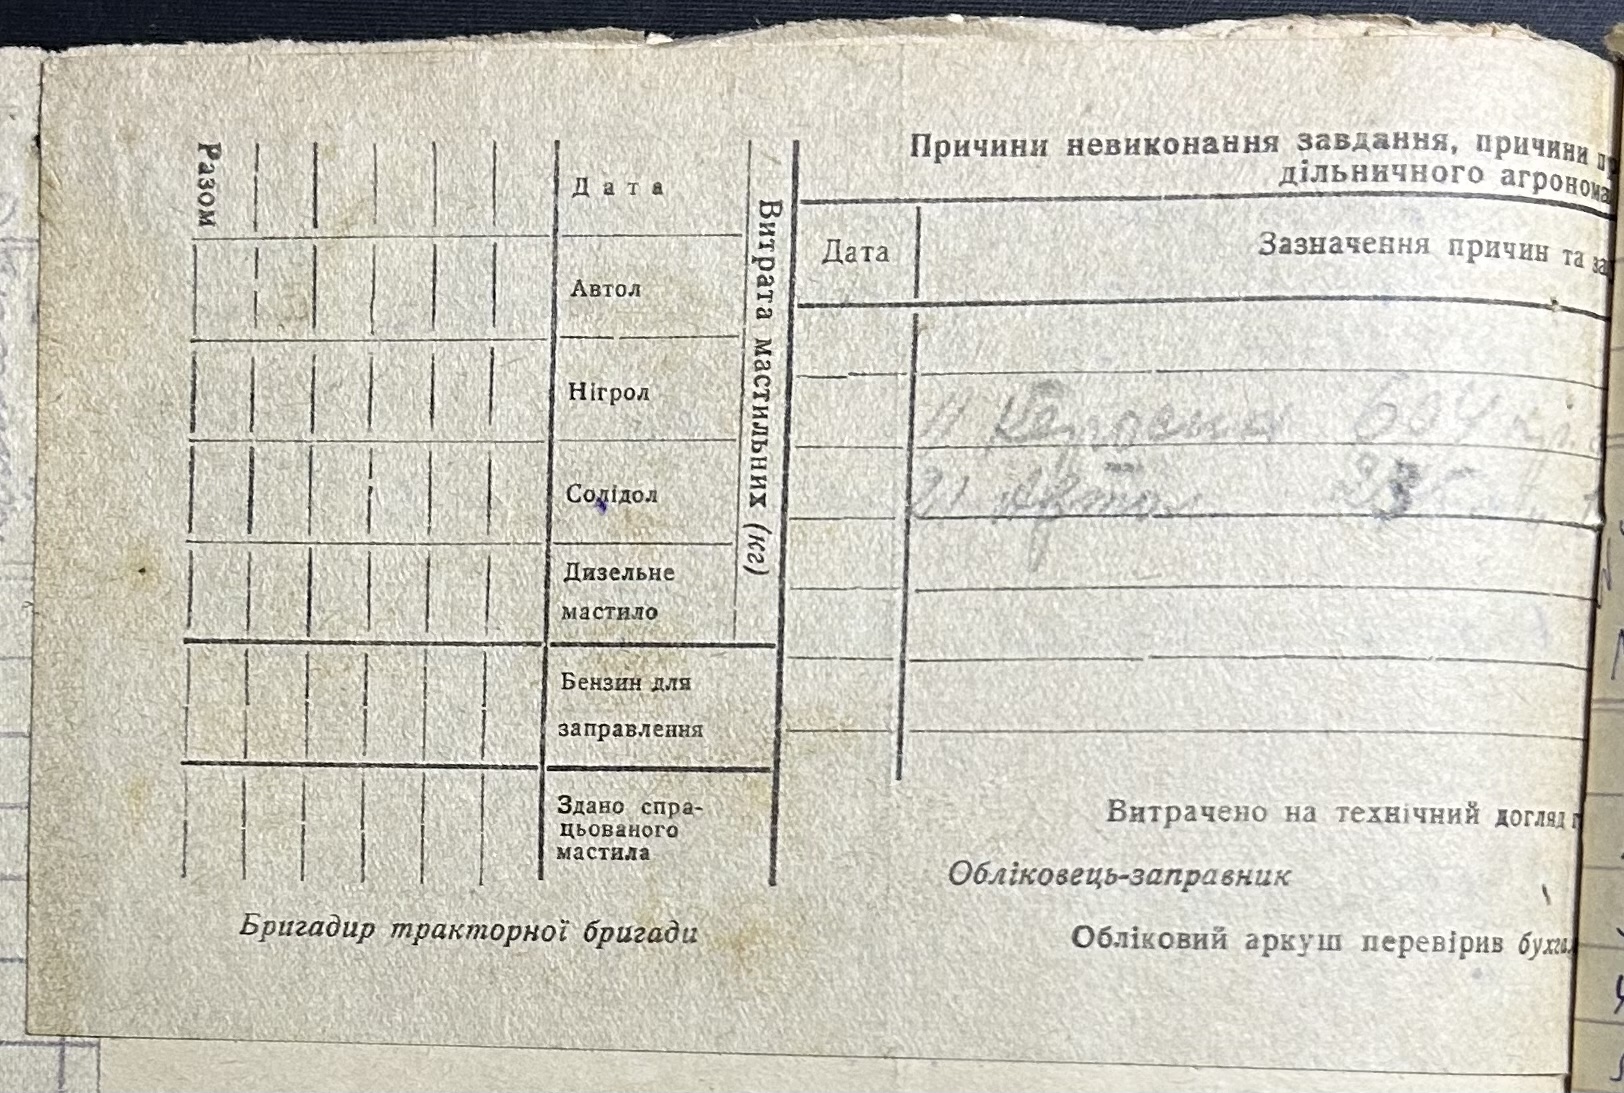 Разом
Дата
Автол
Нігрол
Солідол
Дизельне
мастило
Бензин для
заправлення
Здано спра-
цьованого
мастила
Витрата мастильних (кг)
Бригадир тракторної бригади
Причини невиконання завдання, причини
дільничного агронома
Дата
Зазначення причин та за
Керосина
2) Автол
Витрачено на технічний догляд
Обліковець-заправник
Обліковий аркуш перевірив бухгал